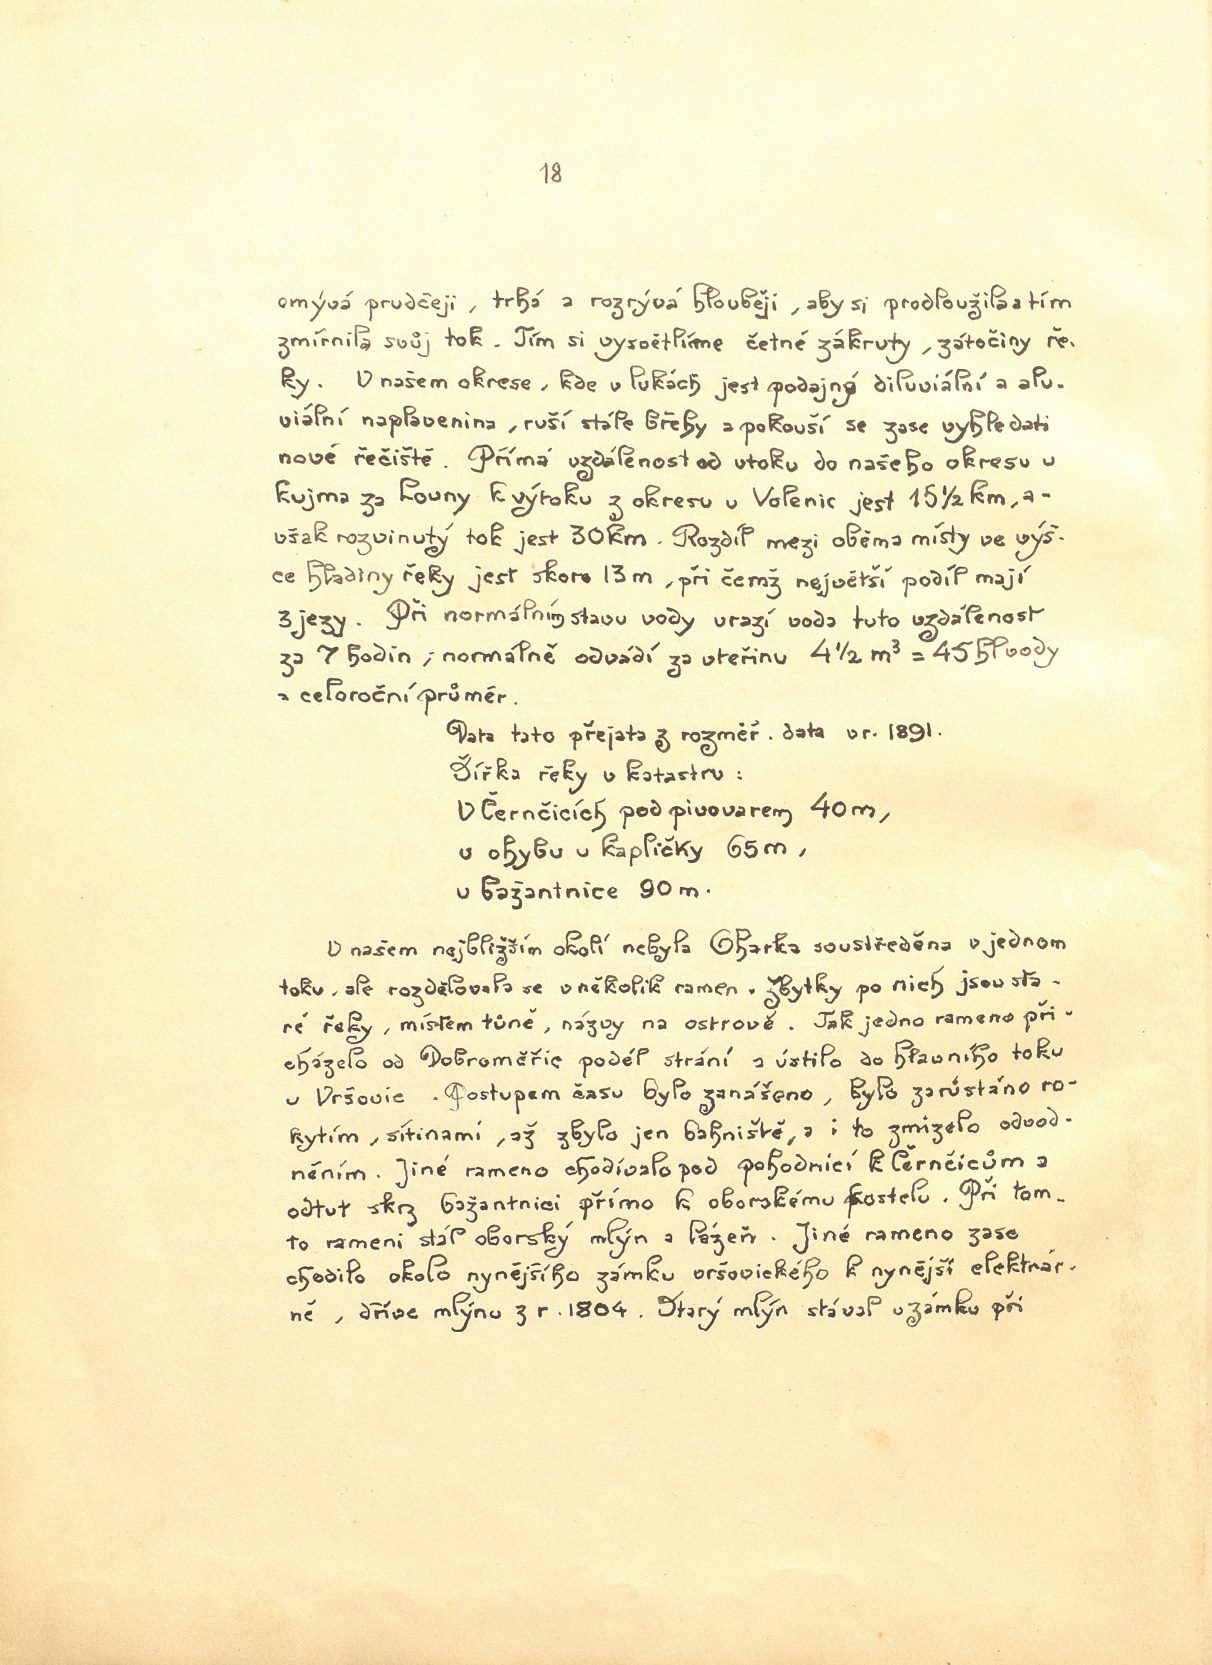 18
omývá prudčeji, trhá a rozrývá hlouběji, aby si prodloužila a tím
zmírnila svůj tok. Tím si vysvětlíme četné zákruty, zátočiny ře-
ky. V našem okrese, kde v lukách jest podajná diluviální a alu-
viální naplavenina, ruší stále břehy a pokouší se zase vyhledati
nové řečiště. Přímá vzdálenost od vtoku do našeho okresu u
kujma za Louny k výtoku z okresu u Volenic jest 15½ km, a-
však rozvinutý tok jest 30km. Rozdíl mezi oběma místy ve výš-
ce hladiny řeky jest skoro 13 m, při čemž největší podíl mají
3 jezy. Při normálním stavu vody urazí voda tuto vzdálenost
za 7 hodin; normálně odvádí za vteřinu 4½ m³ = 45 hl vody
a celoroční průměr.
Data tato přejata z rozměř. data v r. 1891.
Šířka řeky v katastru:
V Černčicích pod pivovarem 40 m,
v ohybu u kapličky 65 m,
u bažantnice 90 m.
V našem nejbližším okolí nebyla Oharka soustředěna v jednom
toku, ale rozdělovala se v několik ramen. Zbytky po nich jsou sta-
ré řeky, místem tůně, názvy na ostrově. Tak jedno rameno při-
cházelo od Dobroměřic podél strání a ústilo do hlavního toku
u Vršovic. Postupem času bylo zanášeno, bylo zarůstáno ro-
kytím, sítinami, až zbylo jen bahniště, a i to zmizelo odvod-
něním. Jiné rameno chodívalo pod pohodnicí k Černčicům a
odtut skrz bažantnici přímo k oborskému kostelu. Při tom-
to rameni stál oborský mlýn a lázeň. Jiné rameno zase
chodilo okolo nynějšího zámku vršovického k nynější elektrár-
ně, dříve mlýnu z r. 1804. Starý mlýn stával u zámku při